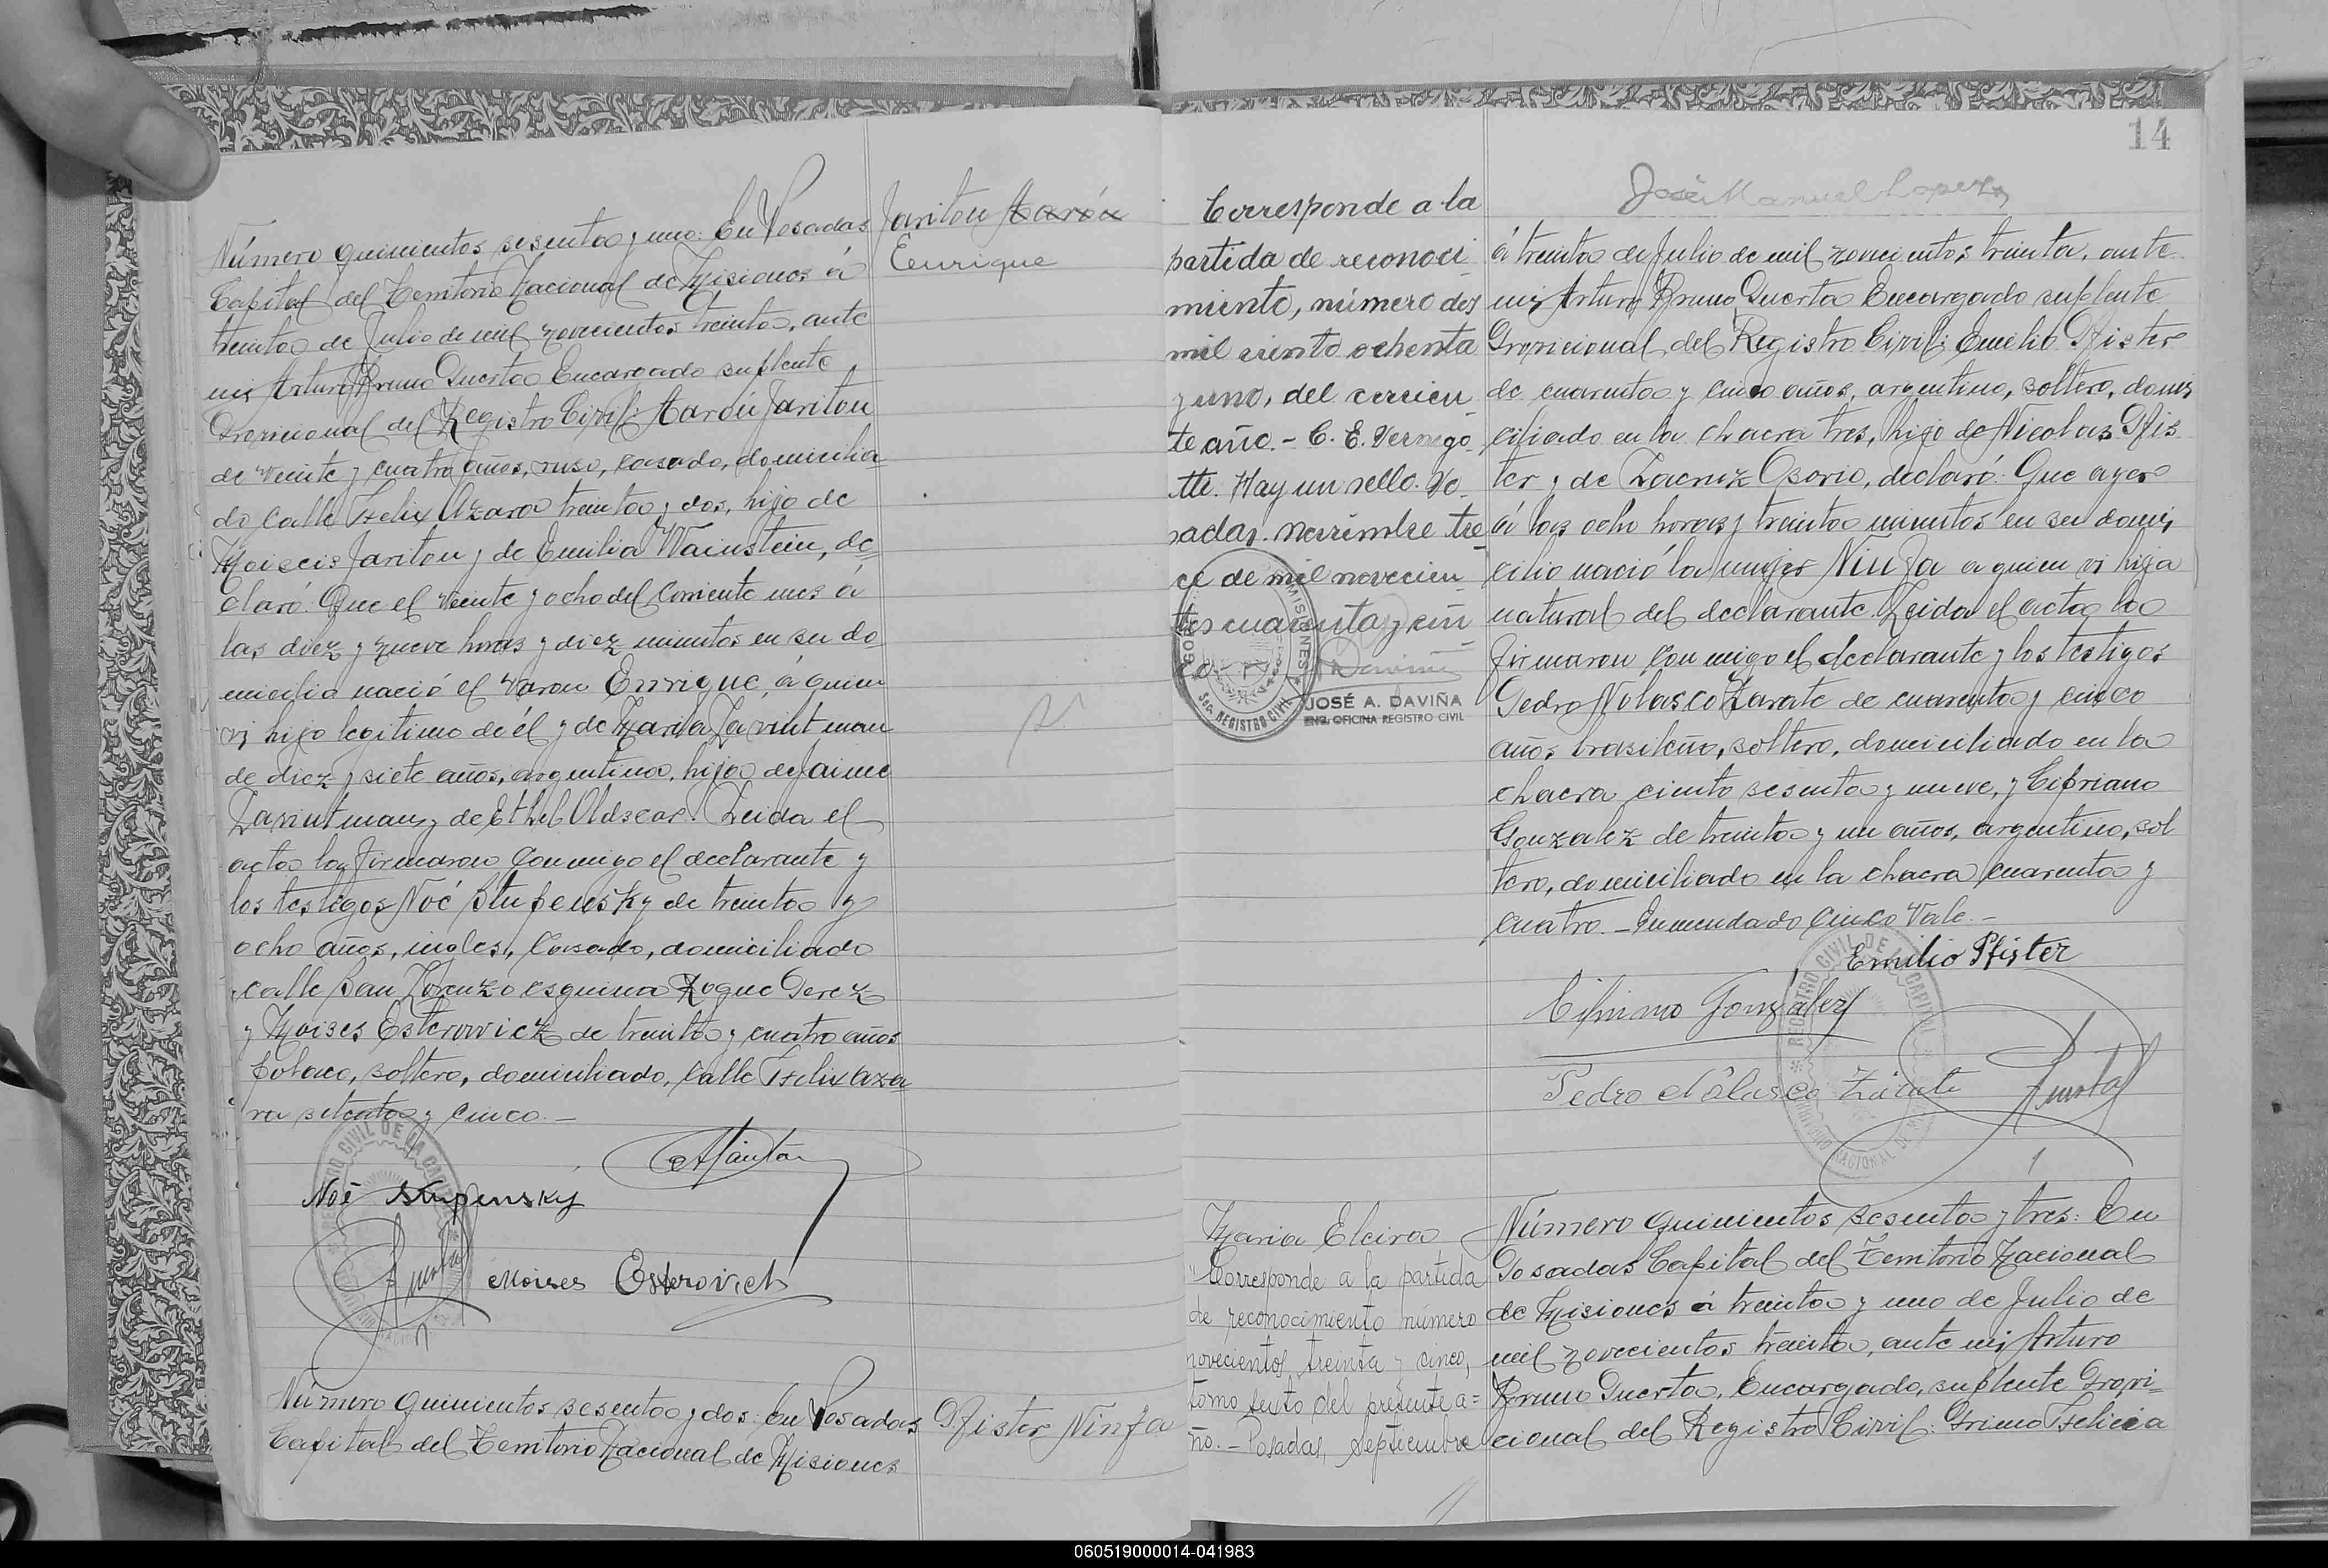 Número quinientos sesenta y uno: En Posadas
Capital del Territorio Nacional de Misiones á
treinta de Julio de mil novecientos treinta, ante
mi Arturo Bruno Duerta Encargado suplente
Provicional del Registro Civil: Aarón Jariton
de veinte y cuatro años, ruso, casado, domicilia
do calle Felix Azara treinta y dos, hijo de
Moiscis Jariton y de Emilia Wainstein, de
claró: Que el veinte y ocho del corriente mes á
las diez y nueve horas y diez minutos en su do
micilio nació el varon Enrique, á quien
vi hijo legitimo de él y de Maria Zavintman
de diez y siete años, argentina, hija de Jaime
Zavintman y de Ethel Oldscar. Leida el
acta la firmaron conmigo el declarante y
los testigos Noé Stupensky de treinta y
ocho años, ingles, casado, domiciliado
calle San Lorenzo esquina Roque Perez
y Moises Esterovich de treinta y cuatro años
polaco, soltero, domiciliado, calle Felix Aza
ra setenta y cinco.-
Jariton Aarón
Enrique
AJariton
Noé Stupensky
Moises Esterovich
Número quinientos sesenta y dos: En Posadas
Capital del Territorio Nacional de Misiones
Pfister Ninfa
14
José Manuel Lopez
Corresponde a la
partida de reconoci
miento, número dos
mil ciento ochenta
y uno, del corrien
te año.- C. E. Vernego
tti. Hay un sello. Po
sadas. noviembre tre
ce de mil novecien
tos cuarenta y cin
co.
JOSÉ A. DAVIÑA
ENC. OFICINA REGISTRO CIVIL
á treinta de Julio de mil novecientos treinta, ante
mi Arturo Bruno Duerta Encargado suplente
Provicional del Registro Civil: Emilio Pfister
de cuarenta y cinco años, argentino, soltero, domi
ciliado en la chacra tres, hijo de Nicolas Pfis
ter y de Lacruz Osorio, declaró: Que ayer
á las ocho horas y treinta minutos en su domi
cilio nació la mujer Ninfa a quien vi hija
natural del declarante. Leida el acta la
firmaron conmigo el declarante y los testigos
Pedro Nolasco Zarate de cuarenta y cinco
años brasileño, soltero, domiciliado en la
chacra ciento sesenta y nueve, y Cipriano
Gonzalez de treinta y un años, argentino, sol
tero, domiciliado en la chacra cuarenta y
cuatro.- Enmendado cinco Vale.-
Emilio Pfister
Cipriano Gonzalez
Pedro Nolasco Zárate
Maria Elcira
"Corresponde a la partida
de reconocimiento número
novecientos treinta y cinco,
tomo sexto del presente a=
ño.- Posadas, septiembre
Número quinientos sesenta y tres: En
Posadas Capital del Territorio Nacional
de Misiones á treinta y uno de Julio de
mil novecientos treinta, ante mi Arturo
Bruno Duerta, Encargado, suplente Provi=
cional del Registro Civil: Primo Felicia
060519000014-041983